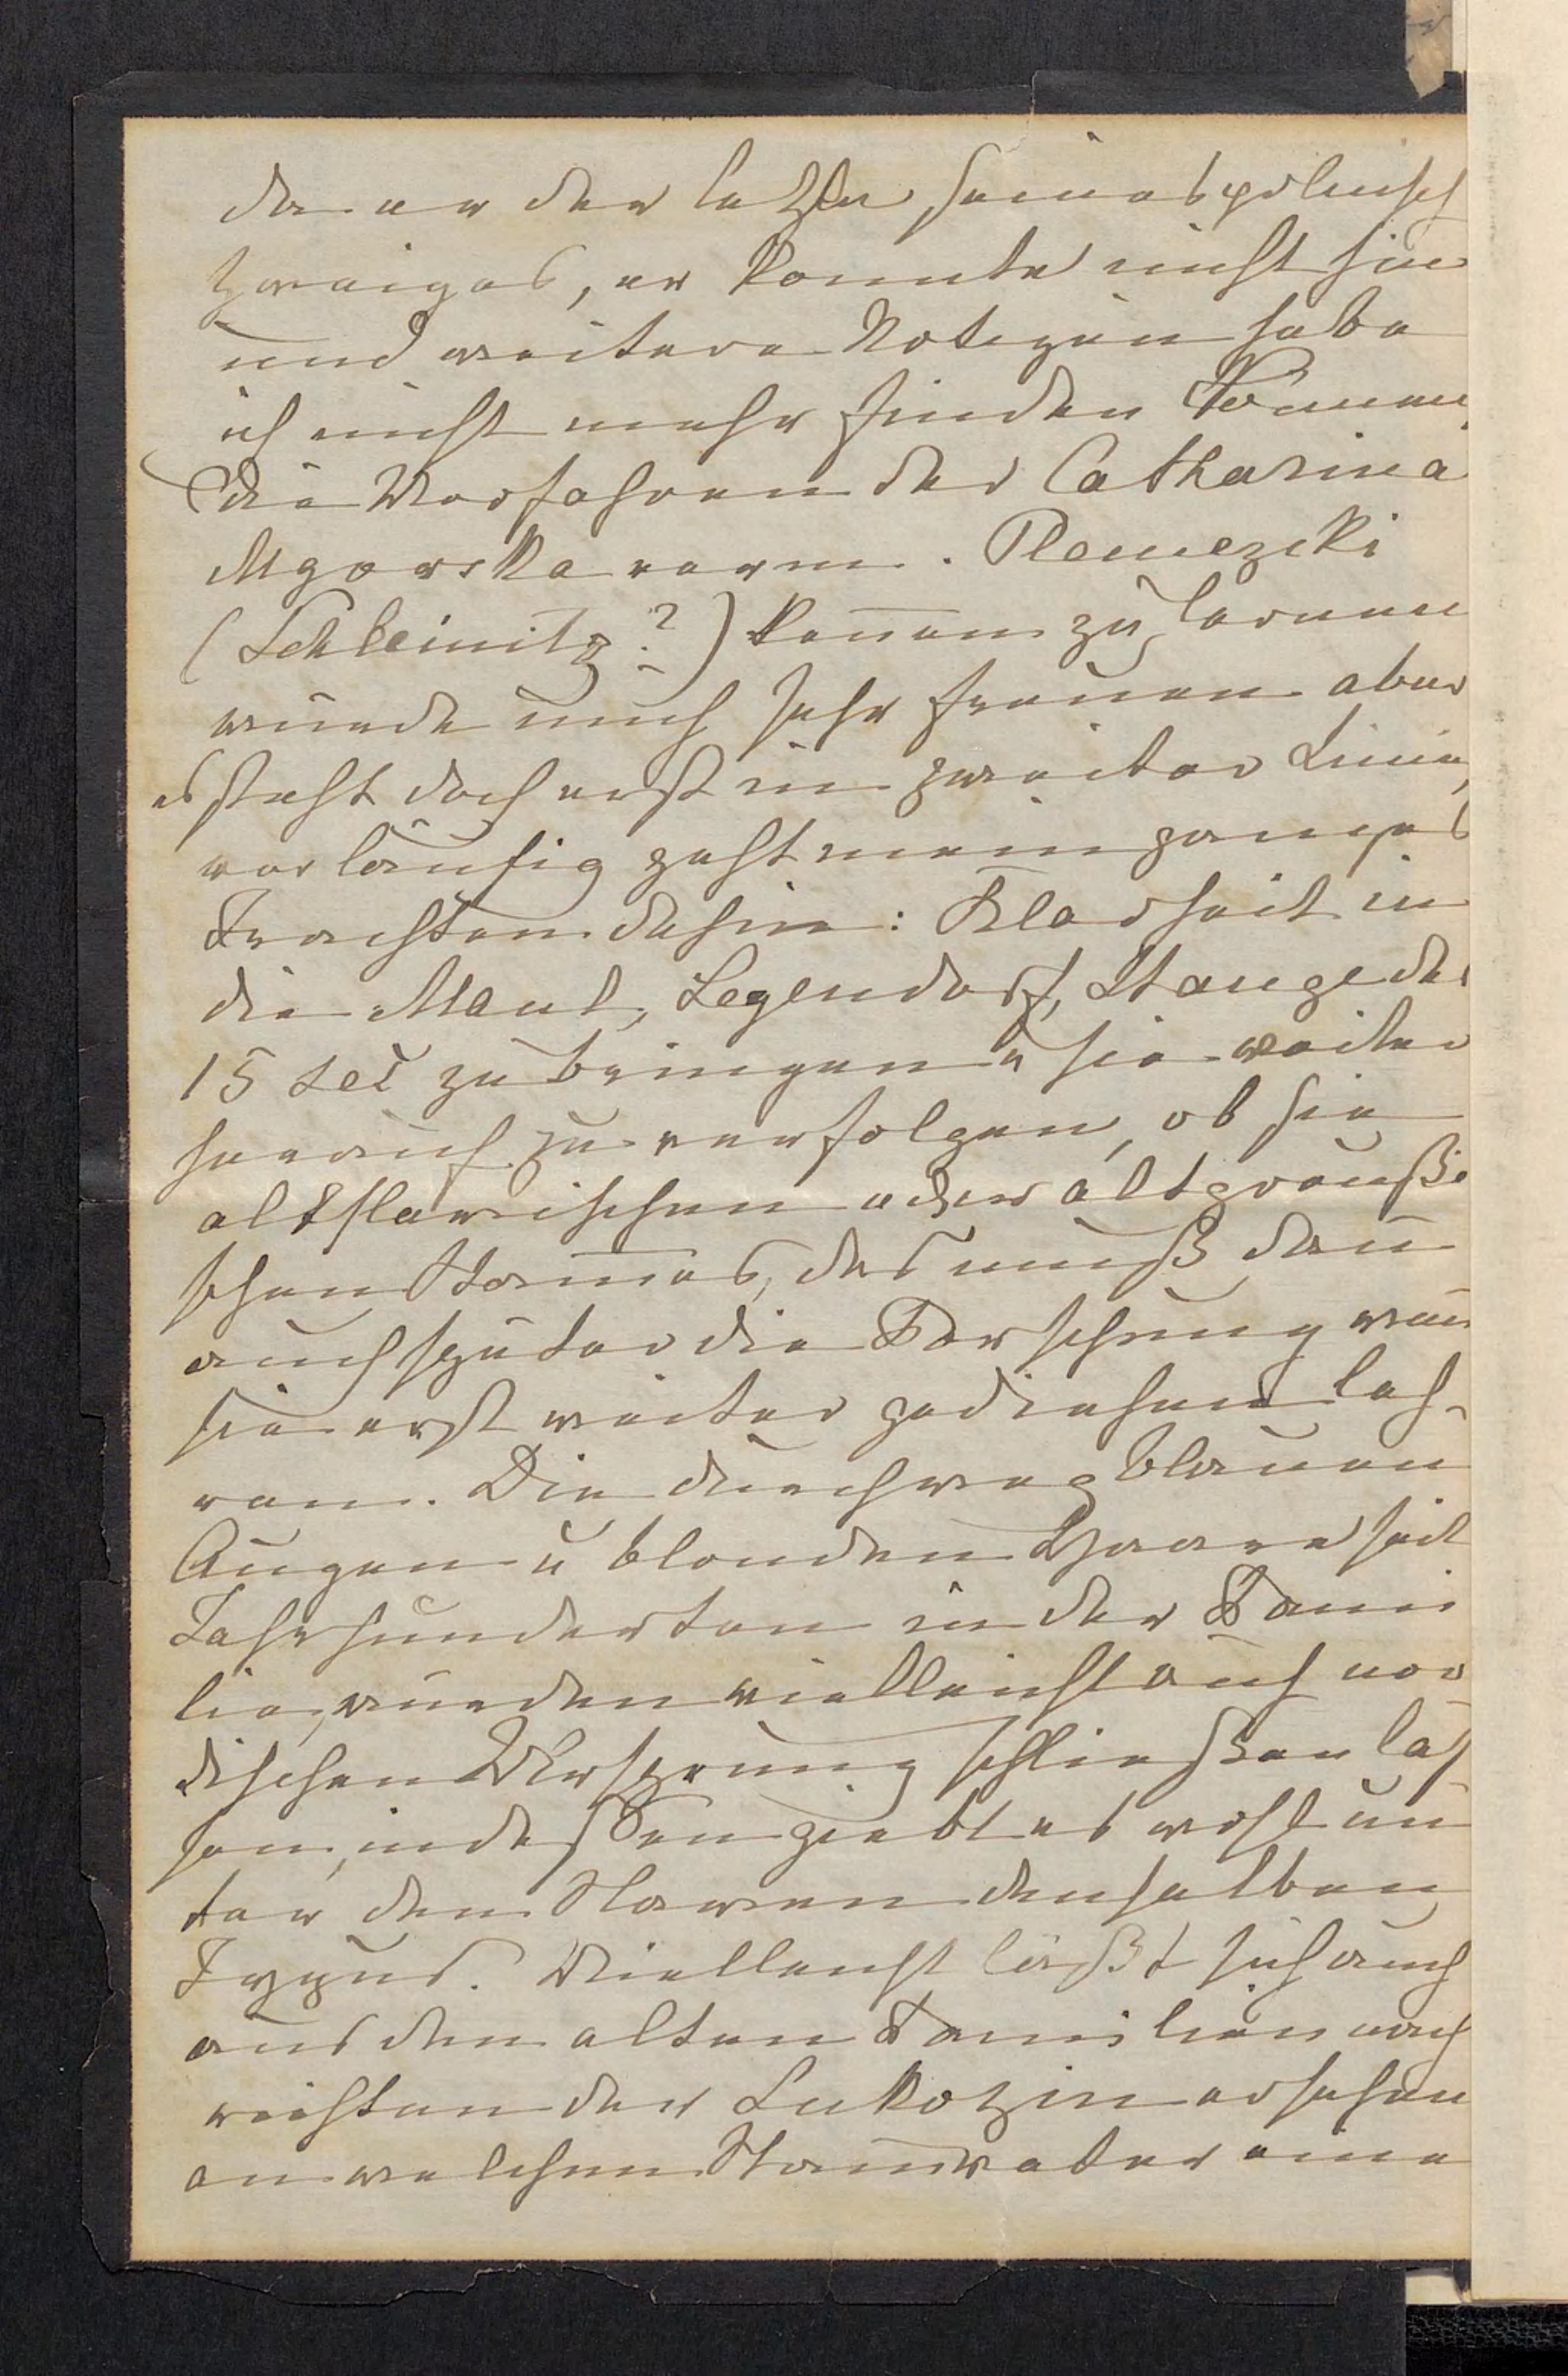 da er der letzte seines polnisch
Zweiges, er konnte nicht hin
und weitere Notizen habe
ich nicht mehr finden können,
die Vorfahren der Catharina
Mgowska verw. Plemezcki
(Schleinitz?) kennen zu lernen
würde mich sehr freuen aber
es steht doch erst in zweiter Linie,
vorläufig geht mein ganzes
Trachten dahin: Klarheit in
die Maul, Legendorf, Stange des
15 sec zu bringen u sie weiter
herauf zu verfolgen, ob sie
altslavischen oder altpreußi
schen Stam̄es, das muß dan̄
auch später die Forschung wen̄
sie erst weiter gediehen leh-
ren. Die durchweg blauen
Augen u blonden Haare seit
Jahrhunderten in der Fami
lie, würden vielleicht auf nor
dischen Ursprung schließen las
sen, indessen giebt es wohl un
ter den Slawen denselben
Typus. Vielleicht läßt sich auch
aus den alten Familien nach
richten der Lukozin ersehen
an welchen Stam̄vater eine